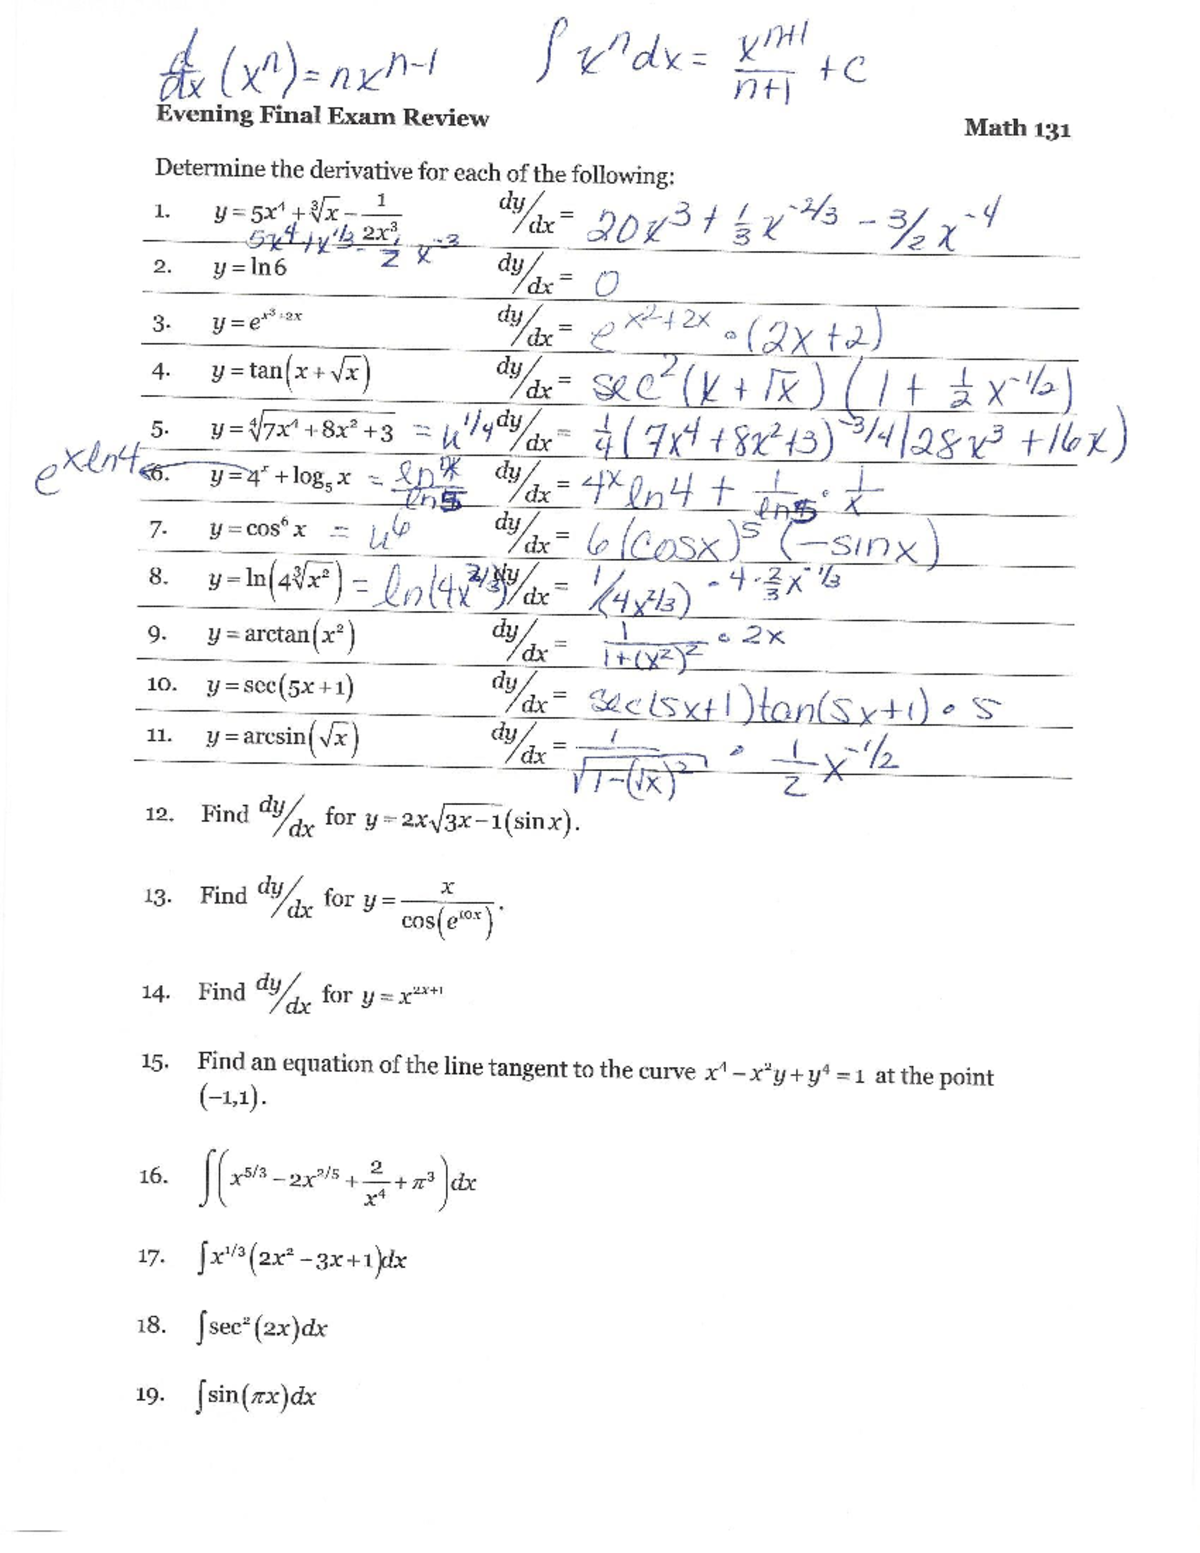 d/dx (xⁿ) = nxⁿ⁻¹ ∫ xⁿ dx = xⁿ⁺¹/n+1 + C
Evening Final Exam Review
Math 131
Determine the derivative for each of the following:
1. y = 5x⁴ + ∛x − 1/2x³ dy/dx = 20x³ + 1/3 x^-2/3 − 3/2 x^-4
5x⁴ + x^1/3 − 1/2 x^-3
2. y = ln6 dy/dx = 0
3. y = e^x²+2x dy/dx = e^x²+2x • (2x+2)
4. y = tan(x + √x) dy/dx = sec²(x + √x) (1 + 1/2 x^-1/2)
5. y = ∜7x⁴ + 8x² + 3 = u^1/4 dy/dx = 1/4 (7x⁴ + 8x² + 3)^-3/4 (28x³ + 16x)
e^xln4
6. y = 4ˣ + log₅ x = ln x/ln 5 dy/dx = 4ˣ ln 4 + 1/ln5 • 1/x
7. y = cos⁶ x = u⁶ dy/dx = 6(cosx)⁵ (−sinx)
8. y = ln(4∛x²) = ln(4x^2/3) dy/dx = 1/(4x^2/3) • 4 • 2/3 x^-1/3
9. y = arctan(x²) dy/dx = 1/1+(x²)² • 2x
10. y = sec(5x+1) dy/dx = sec(5x+1)tan(5x+1) • 5
11. y = arcsin(√x) dy/dx = 1/√1−(√x)² • 1/2 x^-1/2
12. Find dy/dx for y = 2x√3x−1(sin x).
13. Find dy/dx for y = x/cos(e^10x).
14. Find dy/dx for y = x^2x+1
15. Find an equation of the line tangent to the curve x⁴ − x²y + y⁴ = 1 at the point
(−1,1).
16. ∫(x^5/3 − 2x^2/5 + 2/x⁴ + π³)dx
17. ∫x^1/3(2x² − 3x + 1)dx
18. ∫sec²(2x)dx
19. ∫sin(πx)dx